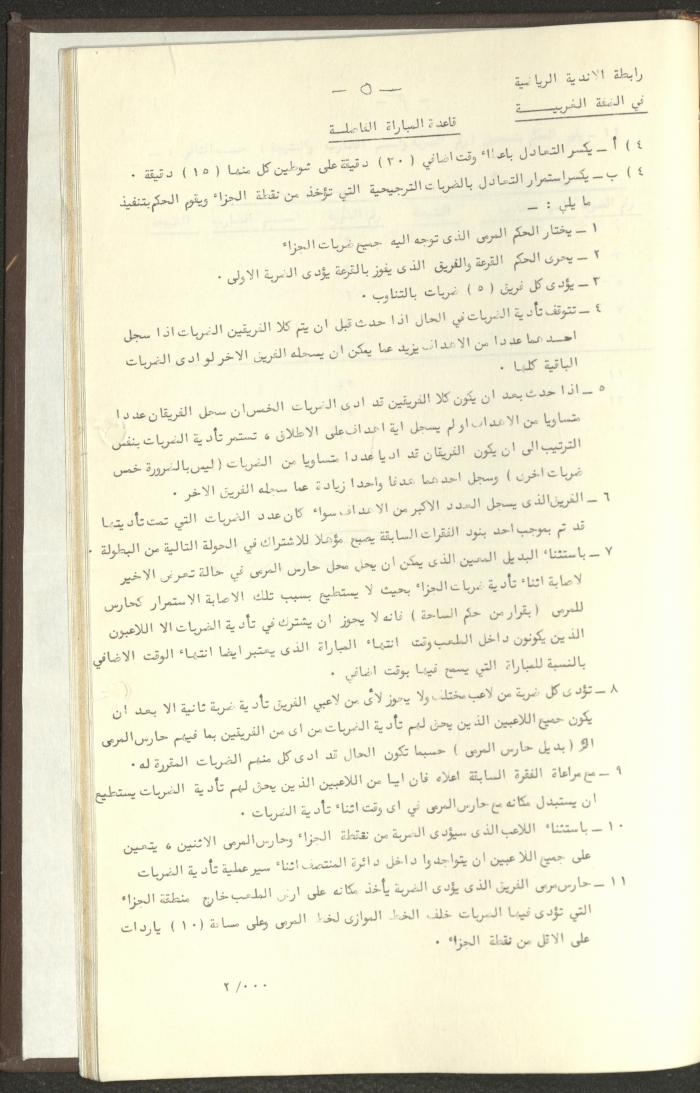 رابطة الاندية الرياضية
في الضفة الغربيــــة
— ٥ —
قاعدة المباراة الفاصلــة
٤ ) أ ــ يكسر التعادل باعطاء وقت اضافي ( ٣٠ ) دقيقة على شوطين كل منهما ( ١٥ ) دقيقة ٠
٤ ) ب ــ يكسر استمرار التعادل بالضربات الترجيحية التي تؤخذ من نقطة الجزاء ويقوم الحكم بتنفيذ
ما يلي : ــ
١ ــ يختار الحكم المرمى الذى توجه اليه جميع ضربات الجزاء
٢ ــ يجرى الحكم القرعة والفريق الذى يفوز بالقرعة يؤدى الضربة الاولى ٠
٣ ــ يؤدى كل فريق ( ٥ ) ضربات بالتناوب ٠
٤ ــ تتوقف تأدية الضربات في الحال اذا حدث قبل ان يتم كلا الفريقين الضربات اذا سجل
احدهما عددا من الاهداف يزيد عما يمكن ان يسجله الفريق الاخر لو ادى الضربات
الباقية كلها ٠
٥ ــ اذا حدث بعد ان يكون كلا الفريقين قد ادى الضربات الخمس ان سجل الفريقان عددا
متساويا من الاهداف او لم يسجل اية اهداف على الاطلاق ، تستمر تأدية الضربات بنفس
الترتيب الى ان يكون الفريقان قد اديا عددا متساويا من الضربات ( ليس بالضرورة خمس
ضربات اخرى ) وسجل احدهما هدفا واحدا زيادة عما سجله الفريق الاخر ٠
٦ ــ الفريق الذى يسجل العدد الاكبر من الاهداف سواء كان عدد الضربات التي تمت تأديتها
قد تم بموجب احد بنود الفقرات السابقة يصبح مؤهلا للاشتراك في الجولة التالية من البطولة ٠
٧ ــ باستثناء البديل المعين الذى يمكن ان يحل محل حارس المرمى في حالة تعرض الاخير
لاصابة اثناء تأدية ضربات الجزاء بحيث لا يستطيع بسبب تلك الاصابة الاستمرار كحارس
للمرمى ( بقرار من حكم الساحة ) فانه لا يجوز ان يشترك في تأدية الضربات الا اللاعبون
الذين يكونون داخل الملعب وقت انتهاء المباراة الذى يعتبر ايضا انتهاء الوقت الاضافي
بالنسبة للمباراة التي يسمح فيها بوقت اضافي ٠
٨ ــ تؤدى كل ضربة من لاعب مختلف ولا يجوز لأى من لاعبي الفريق تأدية ضربة ثانية الا بعد ان
يكون جميع اللاعبين الذين يحق لهم تأدية الضربات من اى من الفريقين بما فيهم حارس المرمى
( بديل حارس المرمى ) حسبما تكون الحال قد ادى كل منهم الضربات المقررة له ٠
٩ ــ مع مراعاة الفقرة السابقة اعلاه فان ايا من اللاعبين الذين يحق لهم تأدية الضربات يستطيع
ان يستبدل مكانه مع حارس المرمى في اى وقت اثناء تأدية الضربات ٠
١٠ ــ باستثناء اللاعب الذى سيؤدى الضربة من نقتطة الجزاء وحارس المرمى الاثنين ، يتعين
على جميع اللاعبين ان يتواجدوا داخل دائرة المنتصف اثناء سير عملية تأدية الضربات
١١ ــ حارس مرمى الفريق الذى يؤدى الضربة يأخذ مكانه على ارض الملعب خارج منطقة الجزاء
التي تؤدى فيها الضربات خلف الخط الموازى لخط المرمى وعلى مسافة ( ١٠ ) ياردات
على الاقل من نقطة الجزاء ٠
٢/٠٠٠